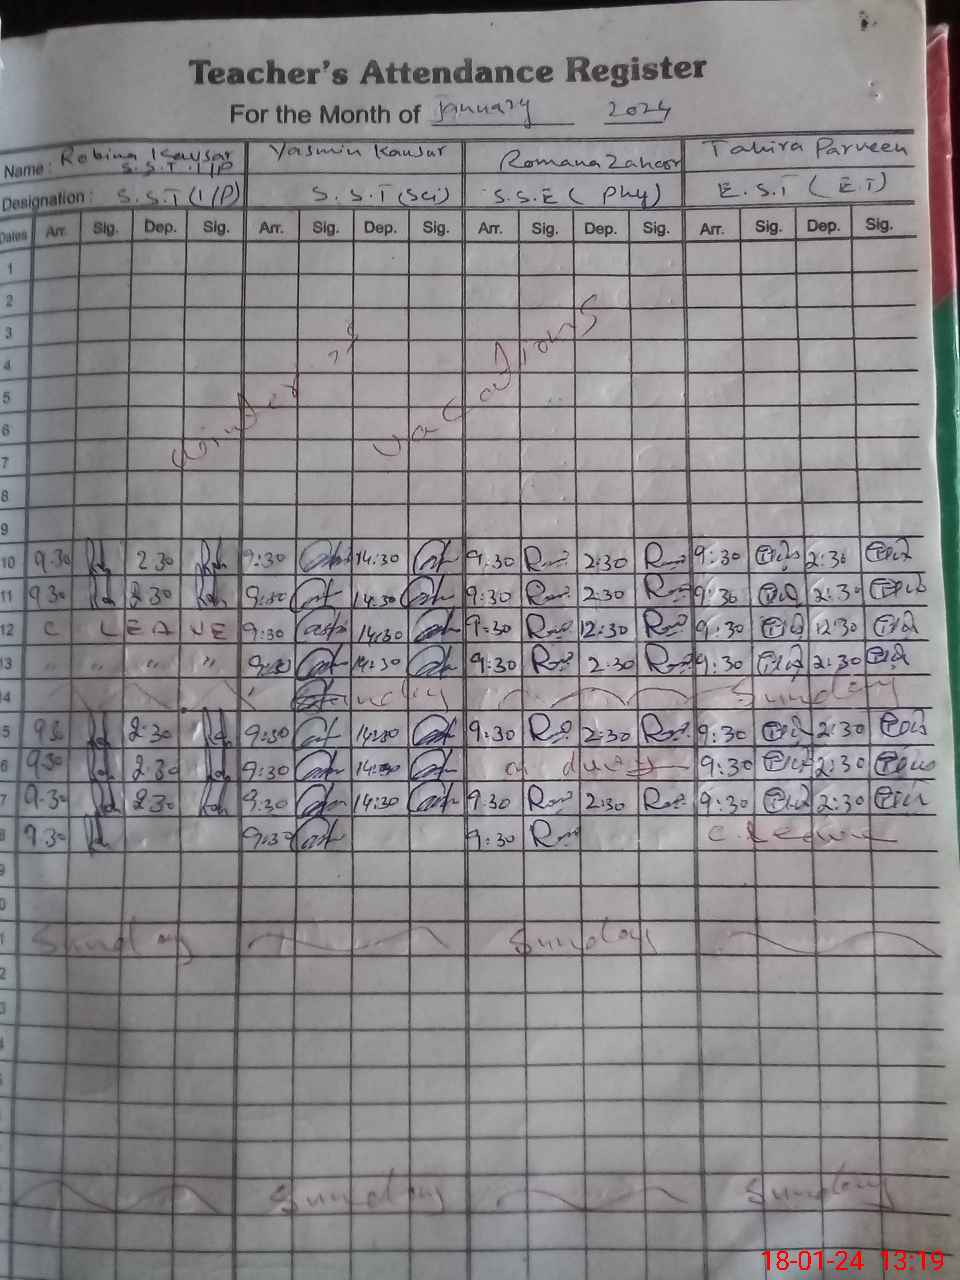 Teacher's Attendance Register
For the Month of January 2024
Name: Robina Kausar S.S.T. I/P Yasmin Kausar Romana Zahoor Tahira Parveen
Designation: S.S.T (I/P) S.S.T (Sci) S.S.E ( Phy) E.S.T ( E.T)
Dates Arr. Sig. Dep. Sig. Arr. Sig. Dep. Sig. Arr. Sig. Dep. Sig. Arr. Sig. Dep. Sig.
1
2
3
4
5
6
7
8
9
winter vacations
10 9.30 2.30 9:30 14:30 9:30 2:30 9:30 2:30
11 9.30 2.30 9:30 14:30 9:30 2:30 9:30 2:30
12 C LEAVE 9:30 14:30 9:30 12:30 9:30 12:30
13 " " " " 9:30 14:30 9:30 2:30 9:30 2:30
14 Sunday Sunday
5 9.30 2:30 9:30 14:30 9:30 2:30 9:30 2:30
6 9.30 2.30 9:30 14:30 on duty 9:30 2:30
7 9.30 2.30 9:30 14:30 9:30 2:30 9:30 2:30
8 9.30 9:30 9:30 C. Leave
9
0
1 Sunday Sunday
2
3
4
5
Sunday Sunday
18-01-24 13:19